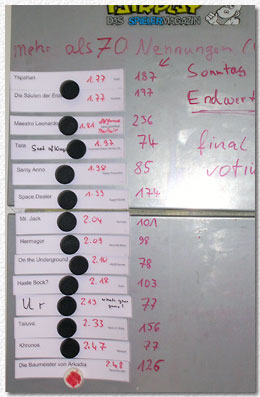 FAIRPLAY
DAS SPIELERMAGAZIN
mehr als 70 Nennungen
Thurn 1.77 187 Sonntag
Die Säulen der Erde 1.77 197 Endwert
Maestro Leonardo 1.81 236
Tara Seat of Kings 1.97 74 final
Santy Anno 1.98 85 voting
Space Dealer 1.99 174
Mr. Jack 2.04 101
Hermagor 2.09 98
On the Underground 2.10 78
Haste Bock? 2.18 103
Ur 2.19 77
Taluva 2.33 156
Khronos 2.47 77
Die Baumeister von Arkadia 2.48 126